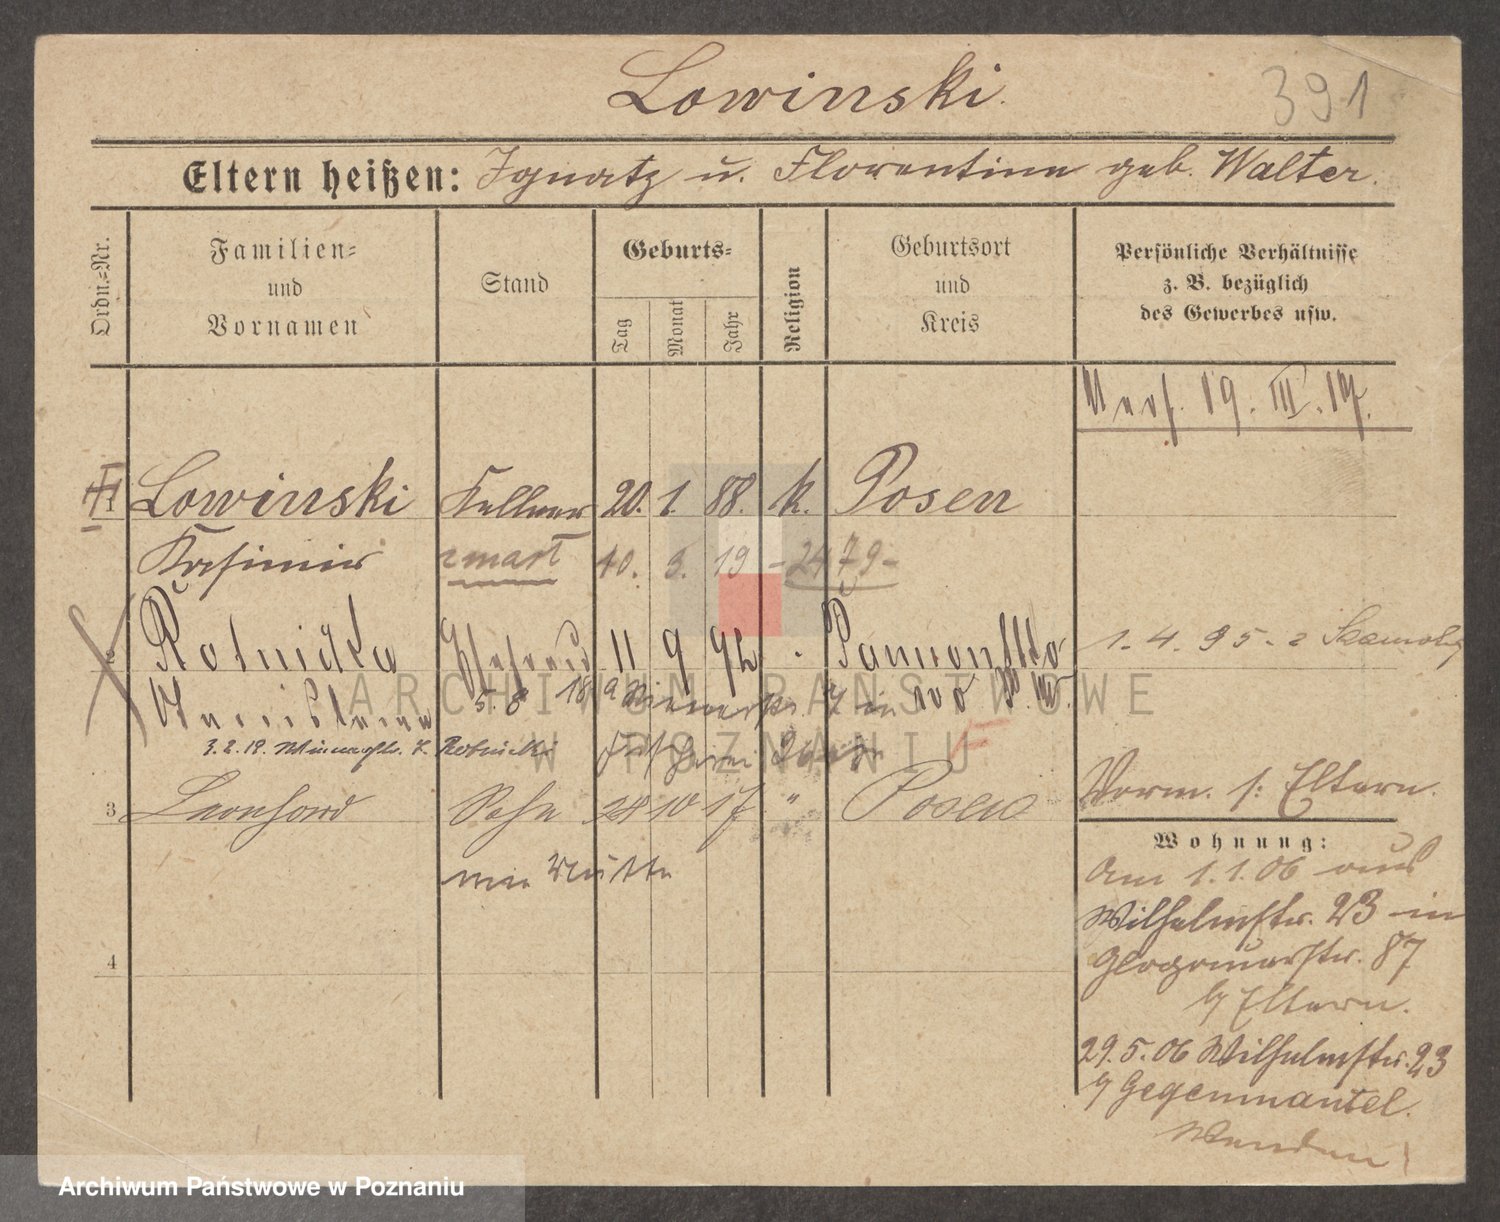 Lowinski.
391
Eltern heißen: Ignatz u. Florentine geb. Walter.
Ordn.-Nr.
Familien-
und
Vornamen
Stand
Geburts-
Tag
Monat
Jahr
Religion
Geburtsort
und
Kreis
Persönliche Verhältnisse
z. B. bezüglich
des Gewerbes usw.
19. III. 17.
1 Lowinski Kellner 20. 1. 88. k. Posen
Kasimir 10. 3. 19 - 2479-
2 Rotnicka Ehefrau 11 9 92
1. 4. 95.
5. 8 18
3. 2. 19. Rotnicki
3 Leonhard Sohn 10 17 " Posen
Vorm. s: Eltern.
Wohnung:
Am 1.1.06 aus
Wilhelmstr. 23 in
Glogauerstr. 87
b/ Eltern.
4
29.5.06 Wilhelmstr. 23
b/ Gegenmantel.
Wenden!
ARCHIWUM PAŃSTWOWE
W POZNANIU
Archiwum Państwowe w Poznaniu